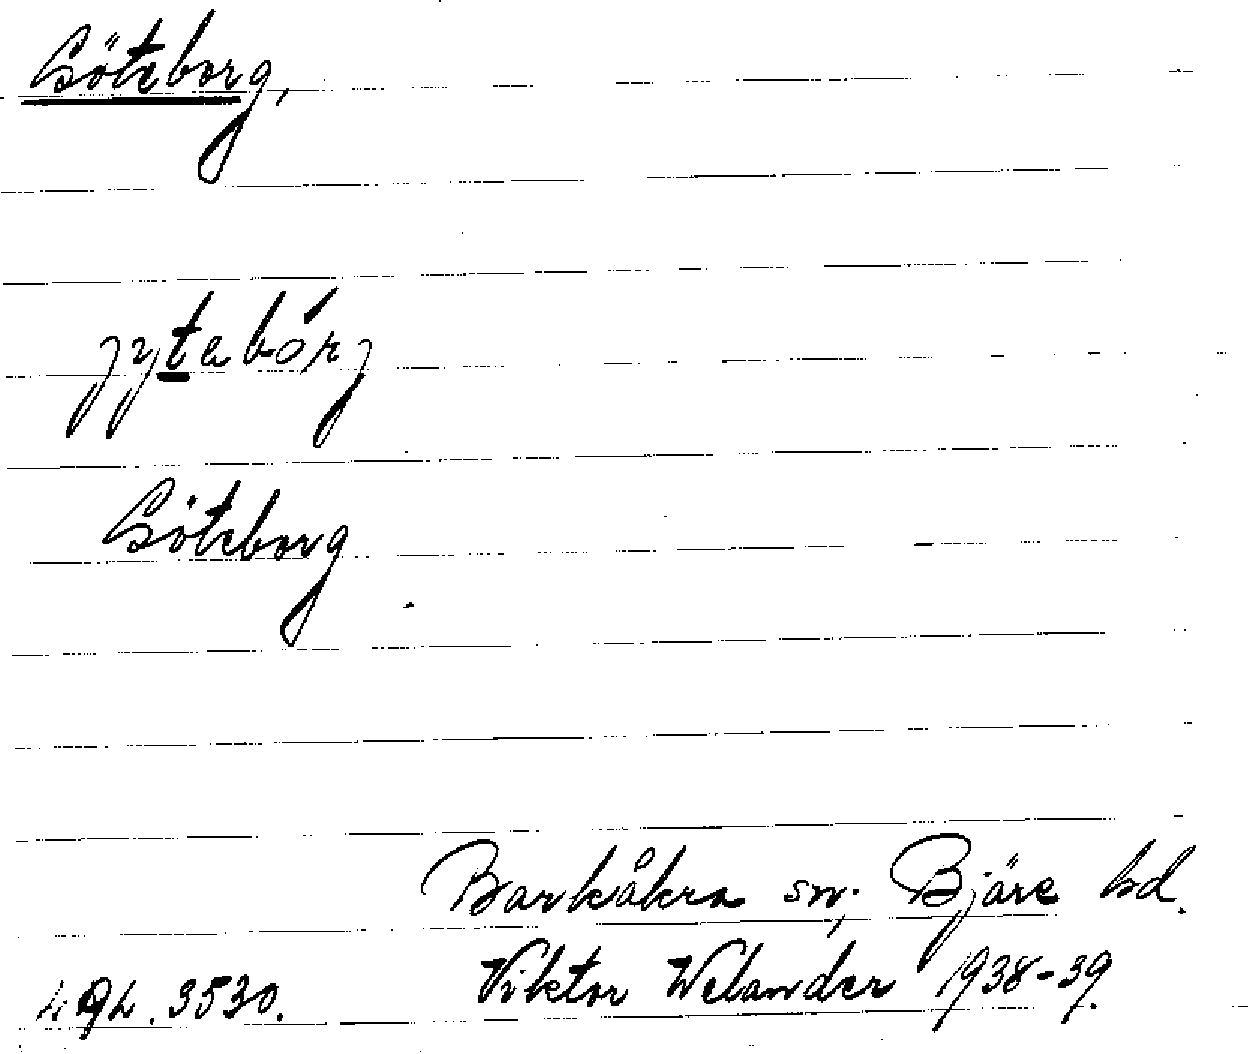 Göteborg,
jytabórj
Göteborg
Barkåkra sn; Bjäre hd.
Viktor Welander 1938-39.
3530.